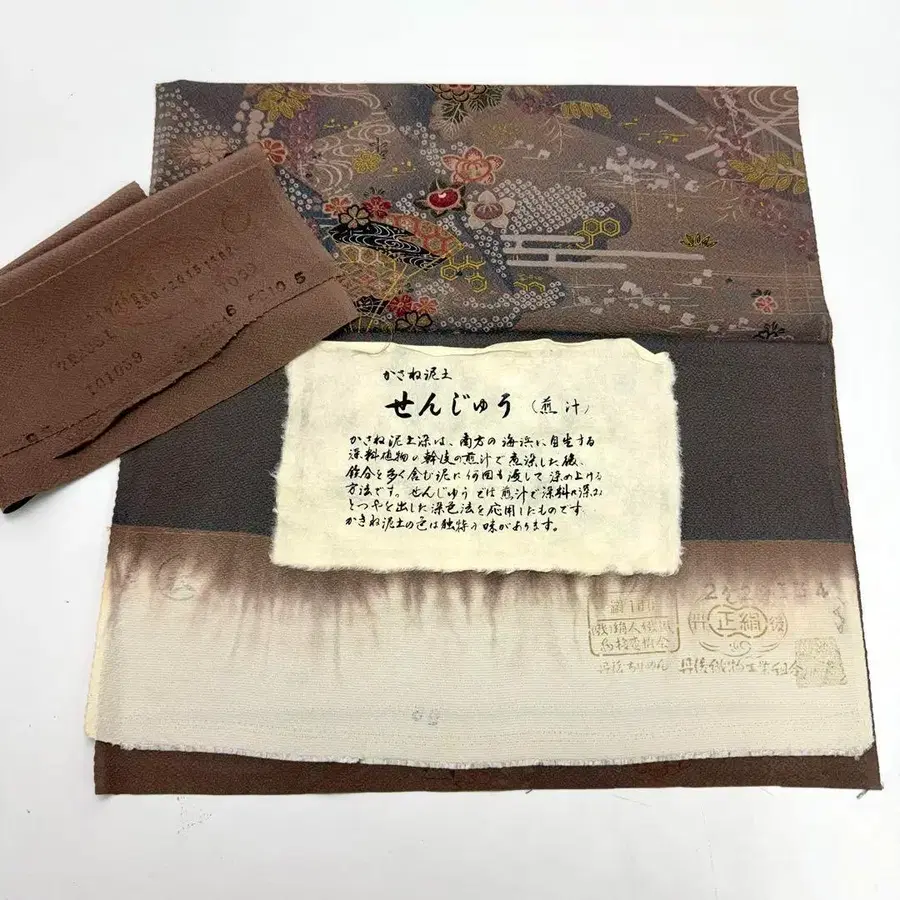 かさね泥土
せんじゅう（煎汁）
かさね泥土染は、南方の海浜に自生する
染料植物の幹皮の煎汁で煮染した後、
鉄分を多く含む泥に何回も浸して染め上げる
方法です。せんじゅうでは煎汁で染料の深み
とつやを出した染色法を応用したものです
かさね泥土の色は独特の味があります。
101039
丹 正絹 後
丹後ちりめん 丹後織物工業組合